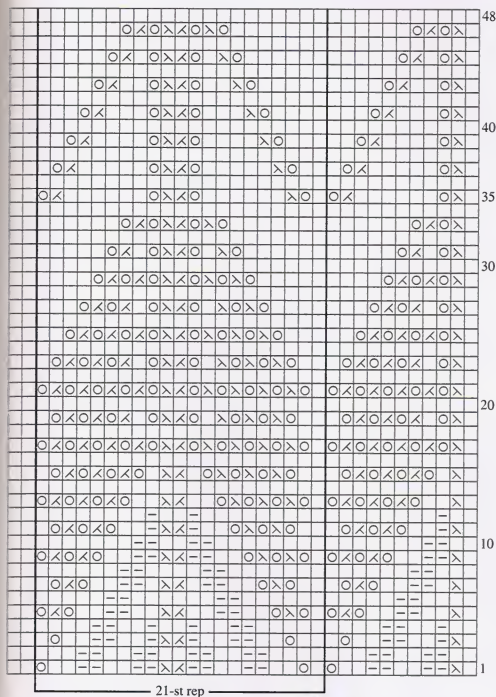 48
40
35
30
20
10
1
21-st rep